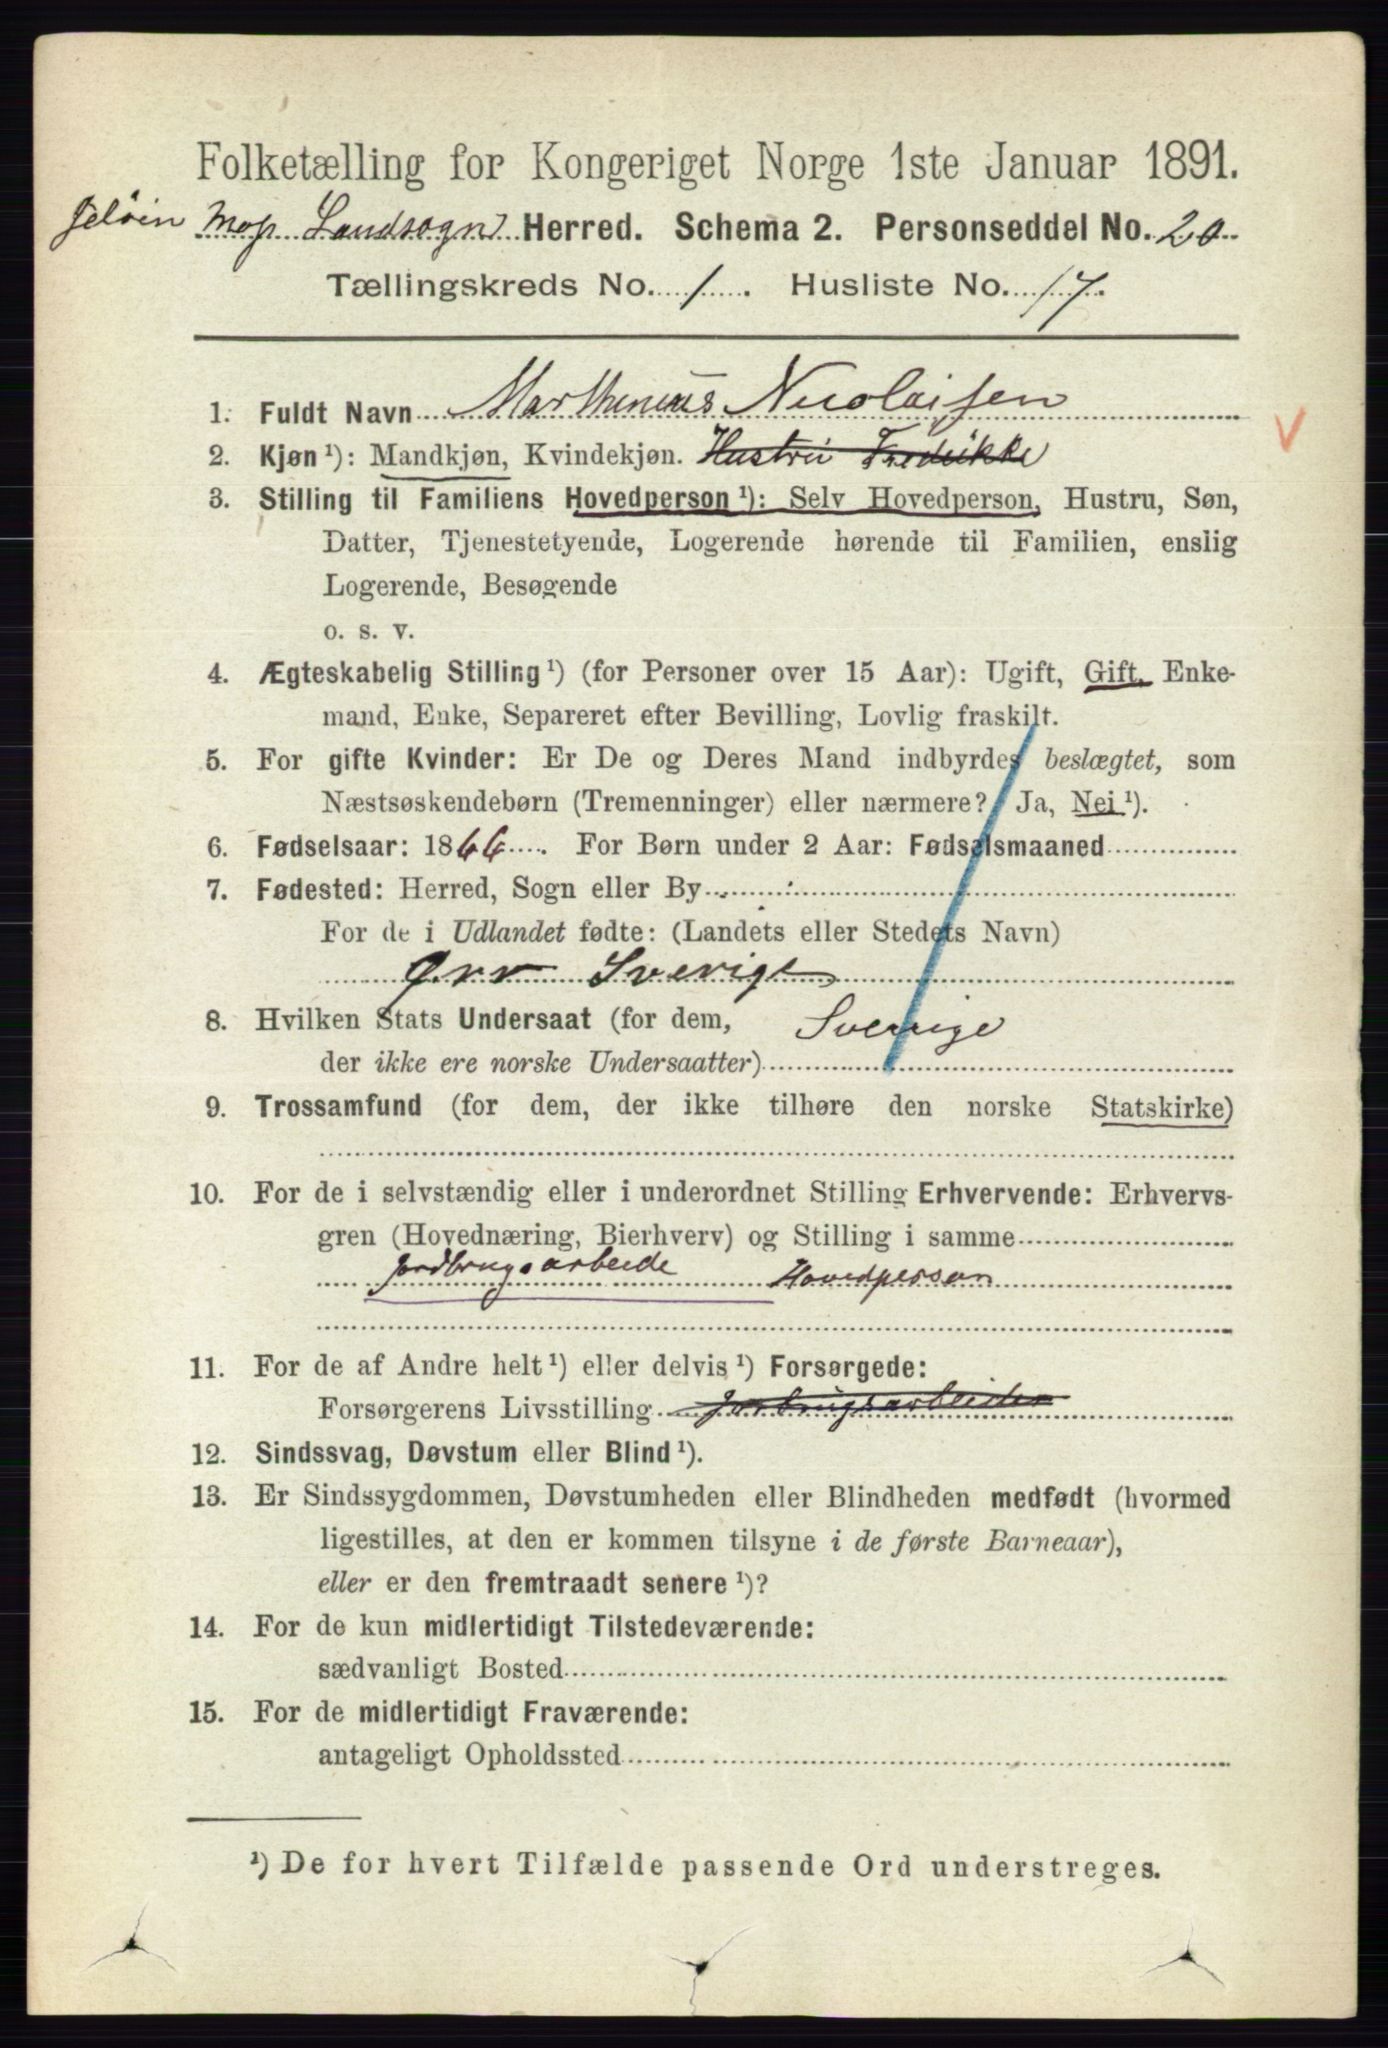 Folketælling for Kongeriget Norge 1ste Januar 1891.
Jeløen Moss Landsogn Herred. Schema 2. Personseddel No. 20
Tællingskreds No. 1. Husliste No. 17.
1. Fuldt Navn Marthinius Nicolaisen
2. Kjøn ¹): Mandkjøn, Kvindekjøn. Hustru Fredrikke
3. Stilling til Familiens Hovedperson ¹): Selv Hovedperson, Hustru, Søn,
Datter, Tjenestetyende, Logerende hørende til Familien, enslig
Logerende, Besøgende
o. s. v.
4. Ægteskabelig Stilling ¹) (for Personer over 15 Aar): Ugift, Gift, Enke-
mand, Enke, Separeret efter Bevilling, Lovlig fraskilt.
5. For gifte Kvinder: Er De og Deres Mand indbyrdes beslægtet, som
Næstsøskendebørn (Tremenninger) eller nærmere? Ja, Nei ¹).
6. Fødselsaar: 1866. For Børn under 2 Aar: Fødselsmaaned
7. Fødested: Herred, Sogn eller By
For de i Udlandet fødte: (Landets eller Stedets Navn)
Ørr Sverige
8. Hvilken Stats Undersaat (for dem, Sverrige
der ikke ere norske Undersaatter)
9. Trossamfund (for dem, der ikke tilhøre den norske Statskirke)
10. For de i selvstændig eller i underordnet Stilling Erhvervende: Erhvervs-
gren (Hovednæring, Bierhverv) og Stilling i samme
jordbrugsarbeide Hovedperson
11. For de af Andre helt ¹) eller delvis ¹) Forsørgede:
Forsørgerens Livsstilling jorbrugsarbeider
12. Sindssvag, Døvstum eller Blind ¹).
13. Er Sindssygdommen, Døvstumheden eller Blindheden medfødt (hvormed
ligestilles, at den er kommen tilsyne i de første Barneaar),
eller er den fremtraadt senere ¹)?
14. For de kun midlertidigt Tilstedeværende:
sædvanligt Bosted
15. For de midlertidigt Fraværende:
antageligt Opholdssted
¹) De for hvert Tilfælde passende Ord understreges.